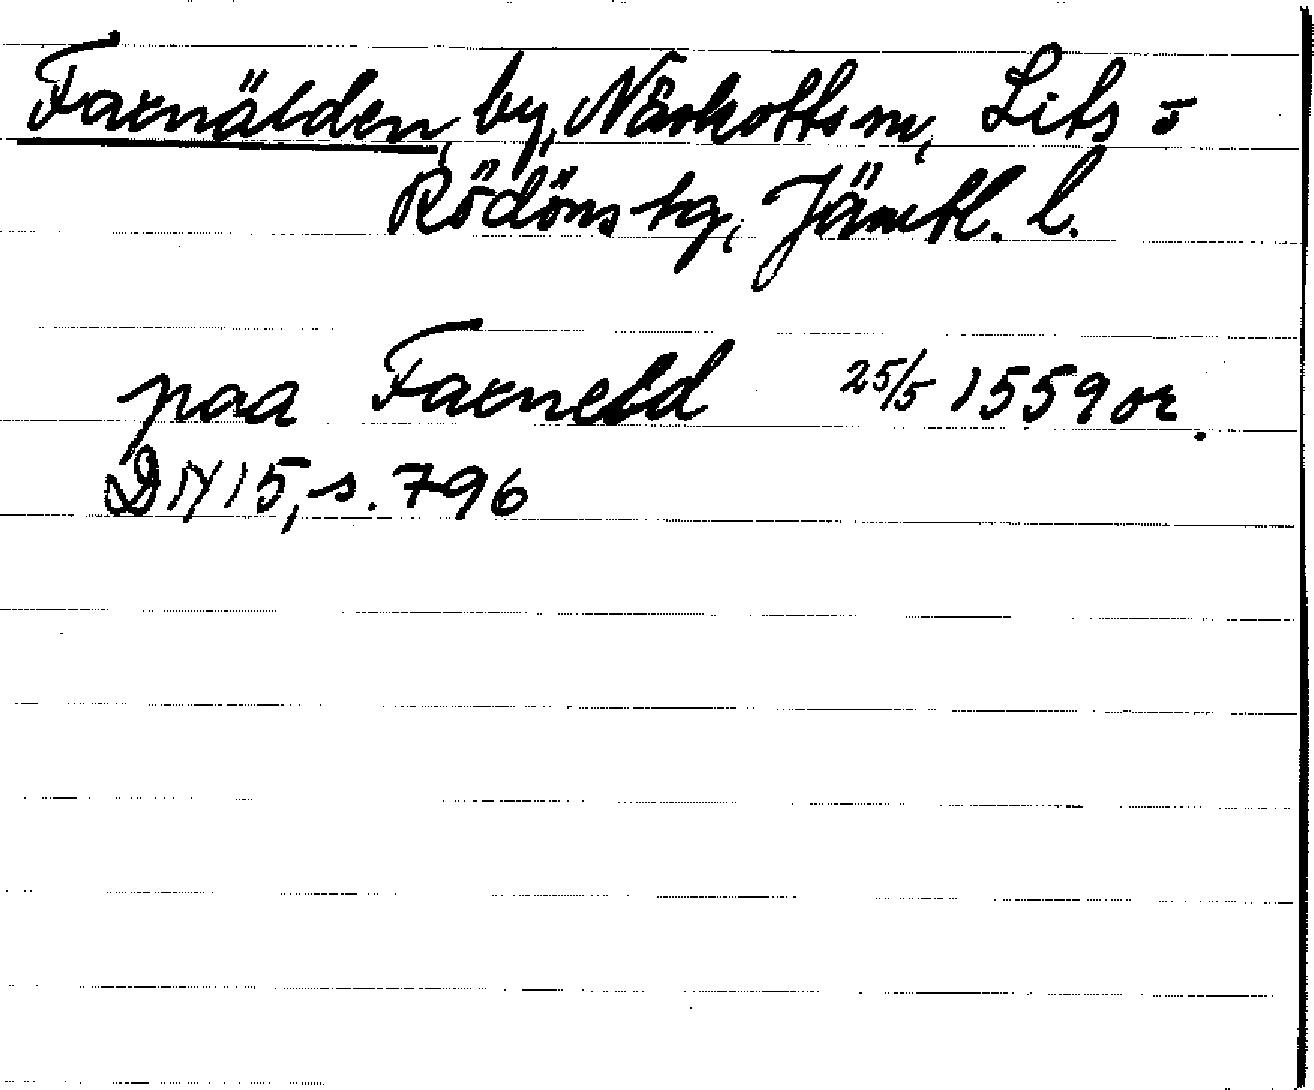 Faxnälden, by, Näskotts sn, Lits o
Rödöns tg, Jämtl. l.
paa Faxneld 25/5 1559 or.
DN 15, s. 796